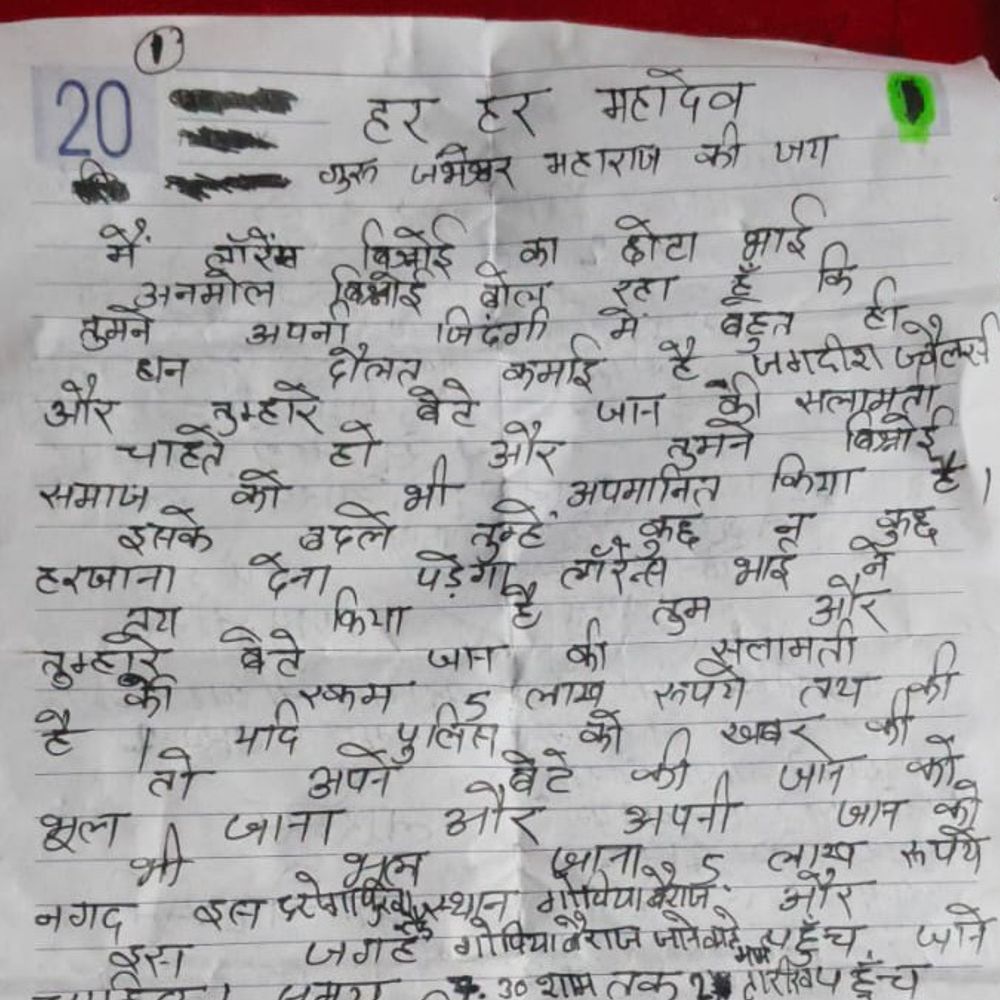 1
20
हर हर महादेव
गुरु जंभेश्वर महाराज की जय
में लॉरेंस बिश्नोई का छोटा भाई
अनमोल बिश्नोई बोल रहा हूँ कि
तुमने अपनी जिंदगी में बहुत ही
धन दौलत कमाई है जगदीश ज्वैलर्स
और तुम्हारे बेटे जान की सलामती
चाहते हो और तुमने बिश्नोई
समाज को भी अपमानित किया है।
इसके बदले तुम्हें कुछ न कुछ
हरजाना देना पड़ेगा लॉरेन्स भाई ने
तय किया है तुम और
तुम्हारे बेटे जान की सलामती
की रकम 5 लाख रूपये तय की
है। यदि पुलिस को खबर की
तो अपने बेटे की जान को
भूल जाना और अपनी जान को
भी भूल जाना 5 लाख रूपये
नगद इस स्थान और
इस जगह पहुँच जाने
30 शाम तक पहुँच